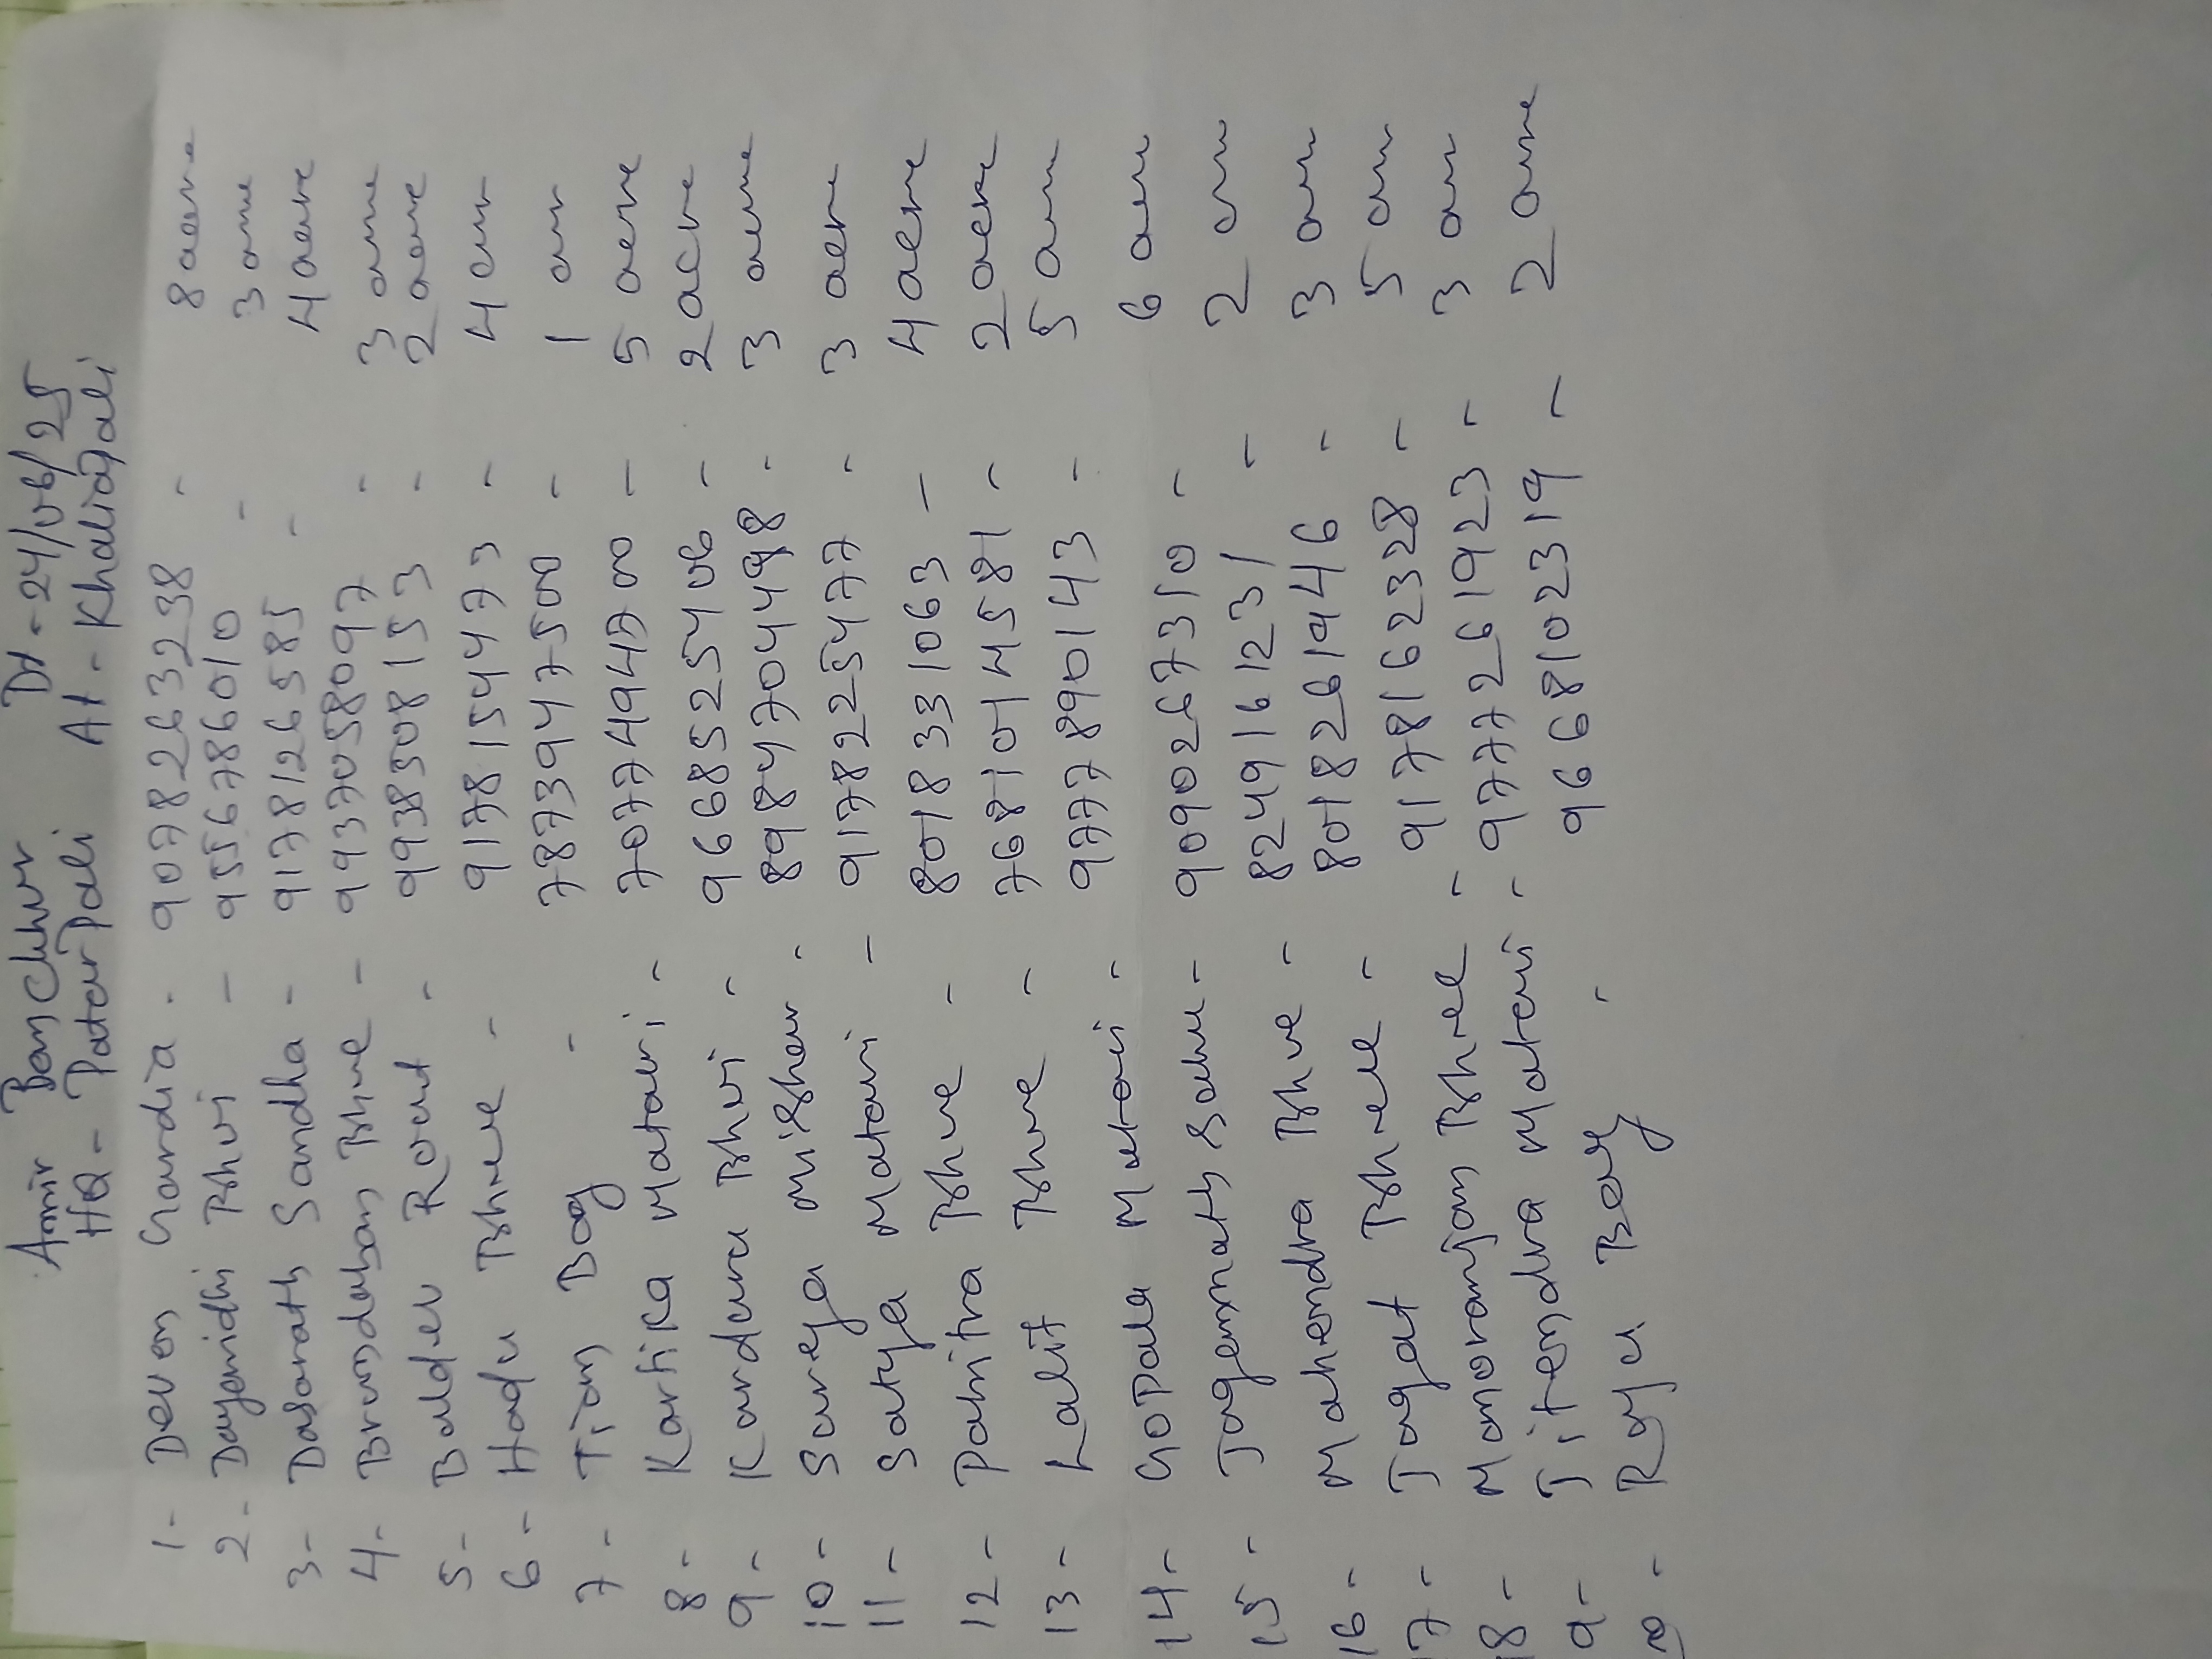 Amir Banchhor Dt - 24/06/25
HQ - PatarPali At - Khaliapali
1- Deven Nardia - 9078263238 - 8 acre
2- Dayanidhi Bhui - 9556786010 - 3 acre
3- Dasarath Sandha - 9178126585 - 4 acre
4- Brundaban Bhue - 9937058097 - 3 acre
5- Baldev Rout - 9938508153 - 2 acre
6- Hadu Bhue - 9178154473 - 4 acre
7- Tian Bag - 7873947500 - 1 acre
8- Kartika Matari - 7077494700 - 5 acre
9- Kandura Bhui - 9668525406 - 2 acre
10- Surya Mishar - 8984704498 - 3 acre
11- Satya Matari - 9178225477 - 3 acre
12- Pabitra Bhue - 8018331063 - 4 acre
13- Lalit Bhue - 7681014581 - 2 acre
14- Gopala Matari - 9777890143 - 5 acre
15- Jagannath Sahu - 9090267310 - 6 acre
16- Mahendra Bhue - 8249161231 - 2 acre
17- Jagat Bhue - 8018261946 - 3 acre
18- Manoranjan Bhue - 9178162328 - 5 acre
9- Jitendra Matari - 9777261923 - 3 acre
- Raju Bag - 9668102319 - 2 acre